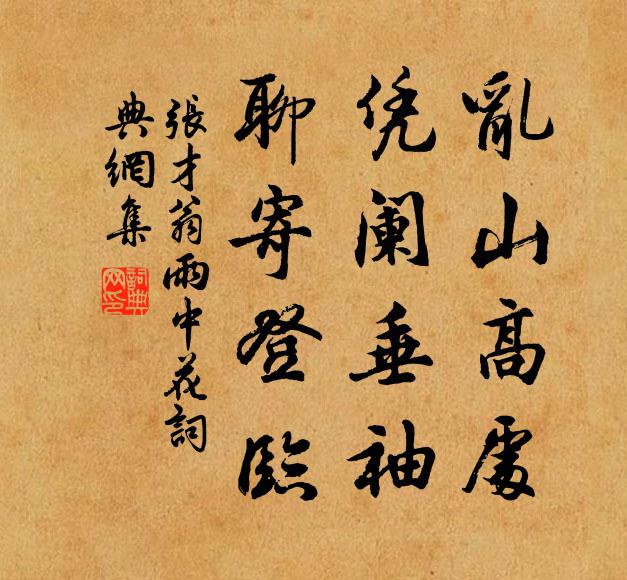 亂山高處
凭阑垂袖
聊寄登臨
張才翁雨中花詞
典網集
詞典網印